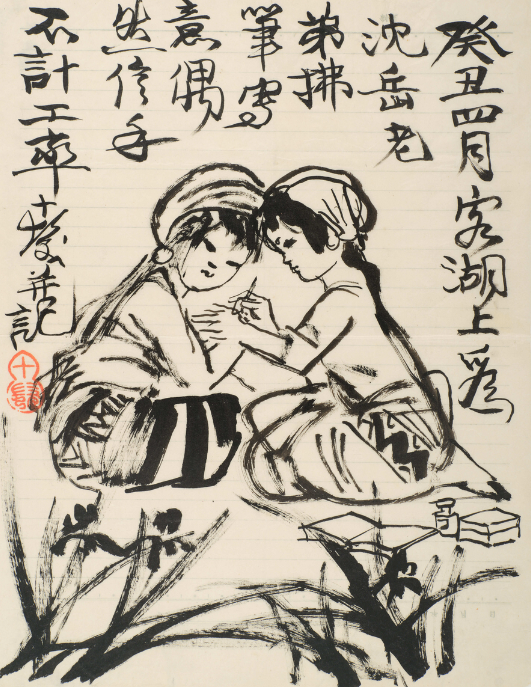 癸丑四月客湖上爲
沈岳老
弟拂
筆寫
意偶
然信手
不計工率
十髮并記
十髮